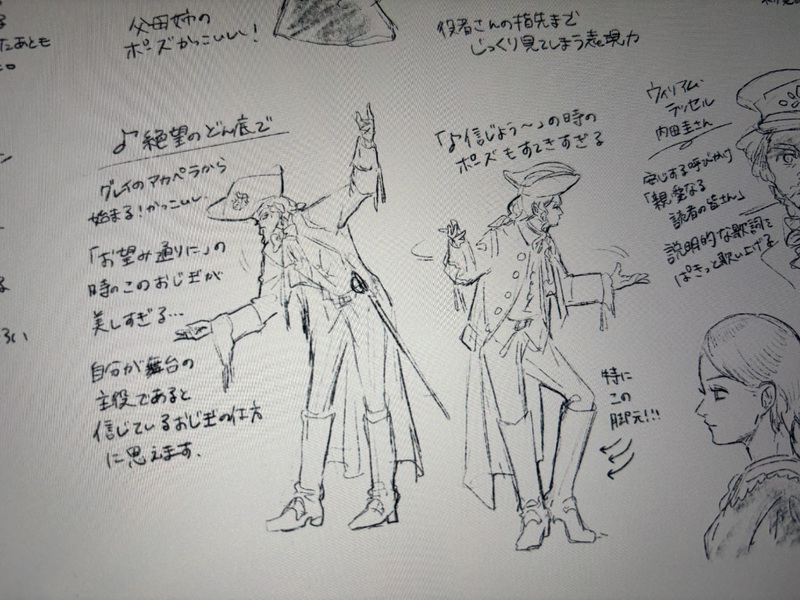 たあとも
父母姉の
ポーズかっこいい!
役者さんの指先まで
じっくり見てしまう表現力
♪絶望のどん底で
グレイのアカペラから
始まる!かっこいい、
「お望み通りに」の
時のこのおじぎが
美しすぎる…
自分が舞台の
主役であると
信じているおじぎの仕方
に思えます.
「♪信じよう〜」の時の
ポーズもすてきすぎる
特に
この
脚元!!!
ウィリアム・
デッセル
内田圭さん
安心する呼びかけ
「親愛なる
読者の皆さん」
説明的な歌詞を
ぱきっと歌い上げる